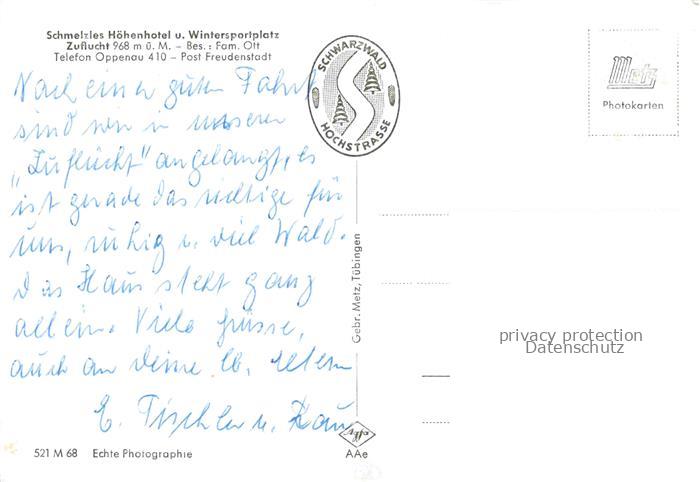 Schmelzles Höhenhotel u. Wintersportplatz
Zuflucht 968 m ü. M. – Bes.: Fam. Ott
Telefon Oppenau 410 – Post Freudenstadt
Nach einer guten Fahrt
sind wir in unserer
„Zuflucht" angelangt, es
ist gerade das richtige für
uns, ruhig u. viel Wald.
Das Haus steht ganz
allein. Viele Grüsse,
auch an deine lb. Eltern
E. Tischler u.
SCHWARZWALD
HOCHSTRASSE
Metz
Photokarten
Gebr. Metz, Tübingen
privacy protection
Datenschutz
521 M 68 Echte Photographie
Agfa
AAe